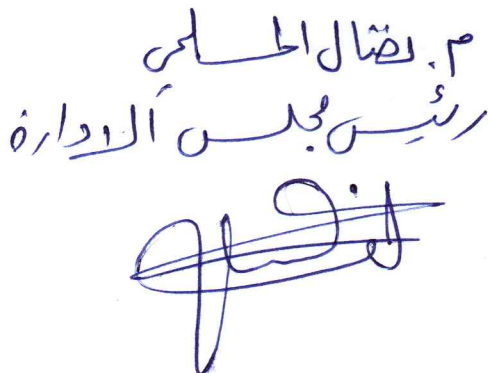 م. نضال الحلبي
رئيس مجلس الادارة